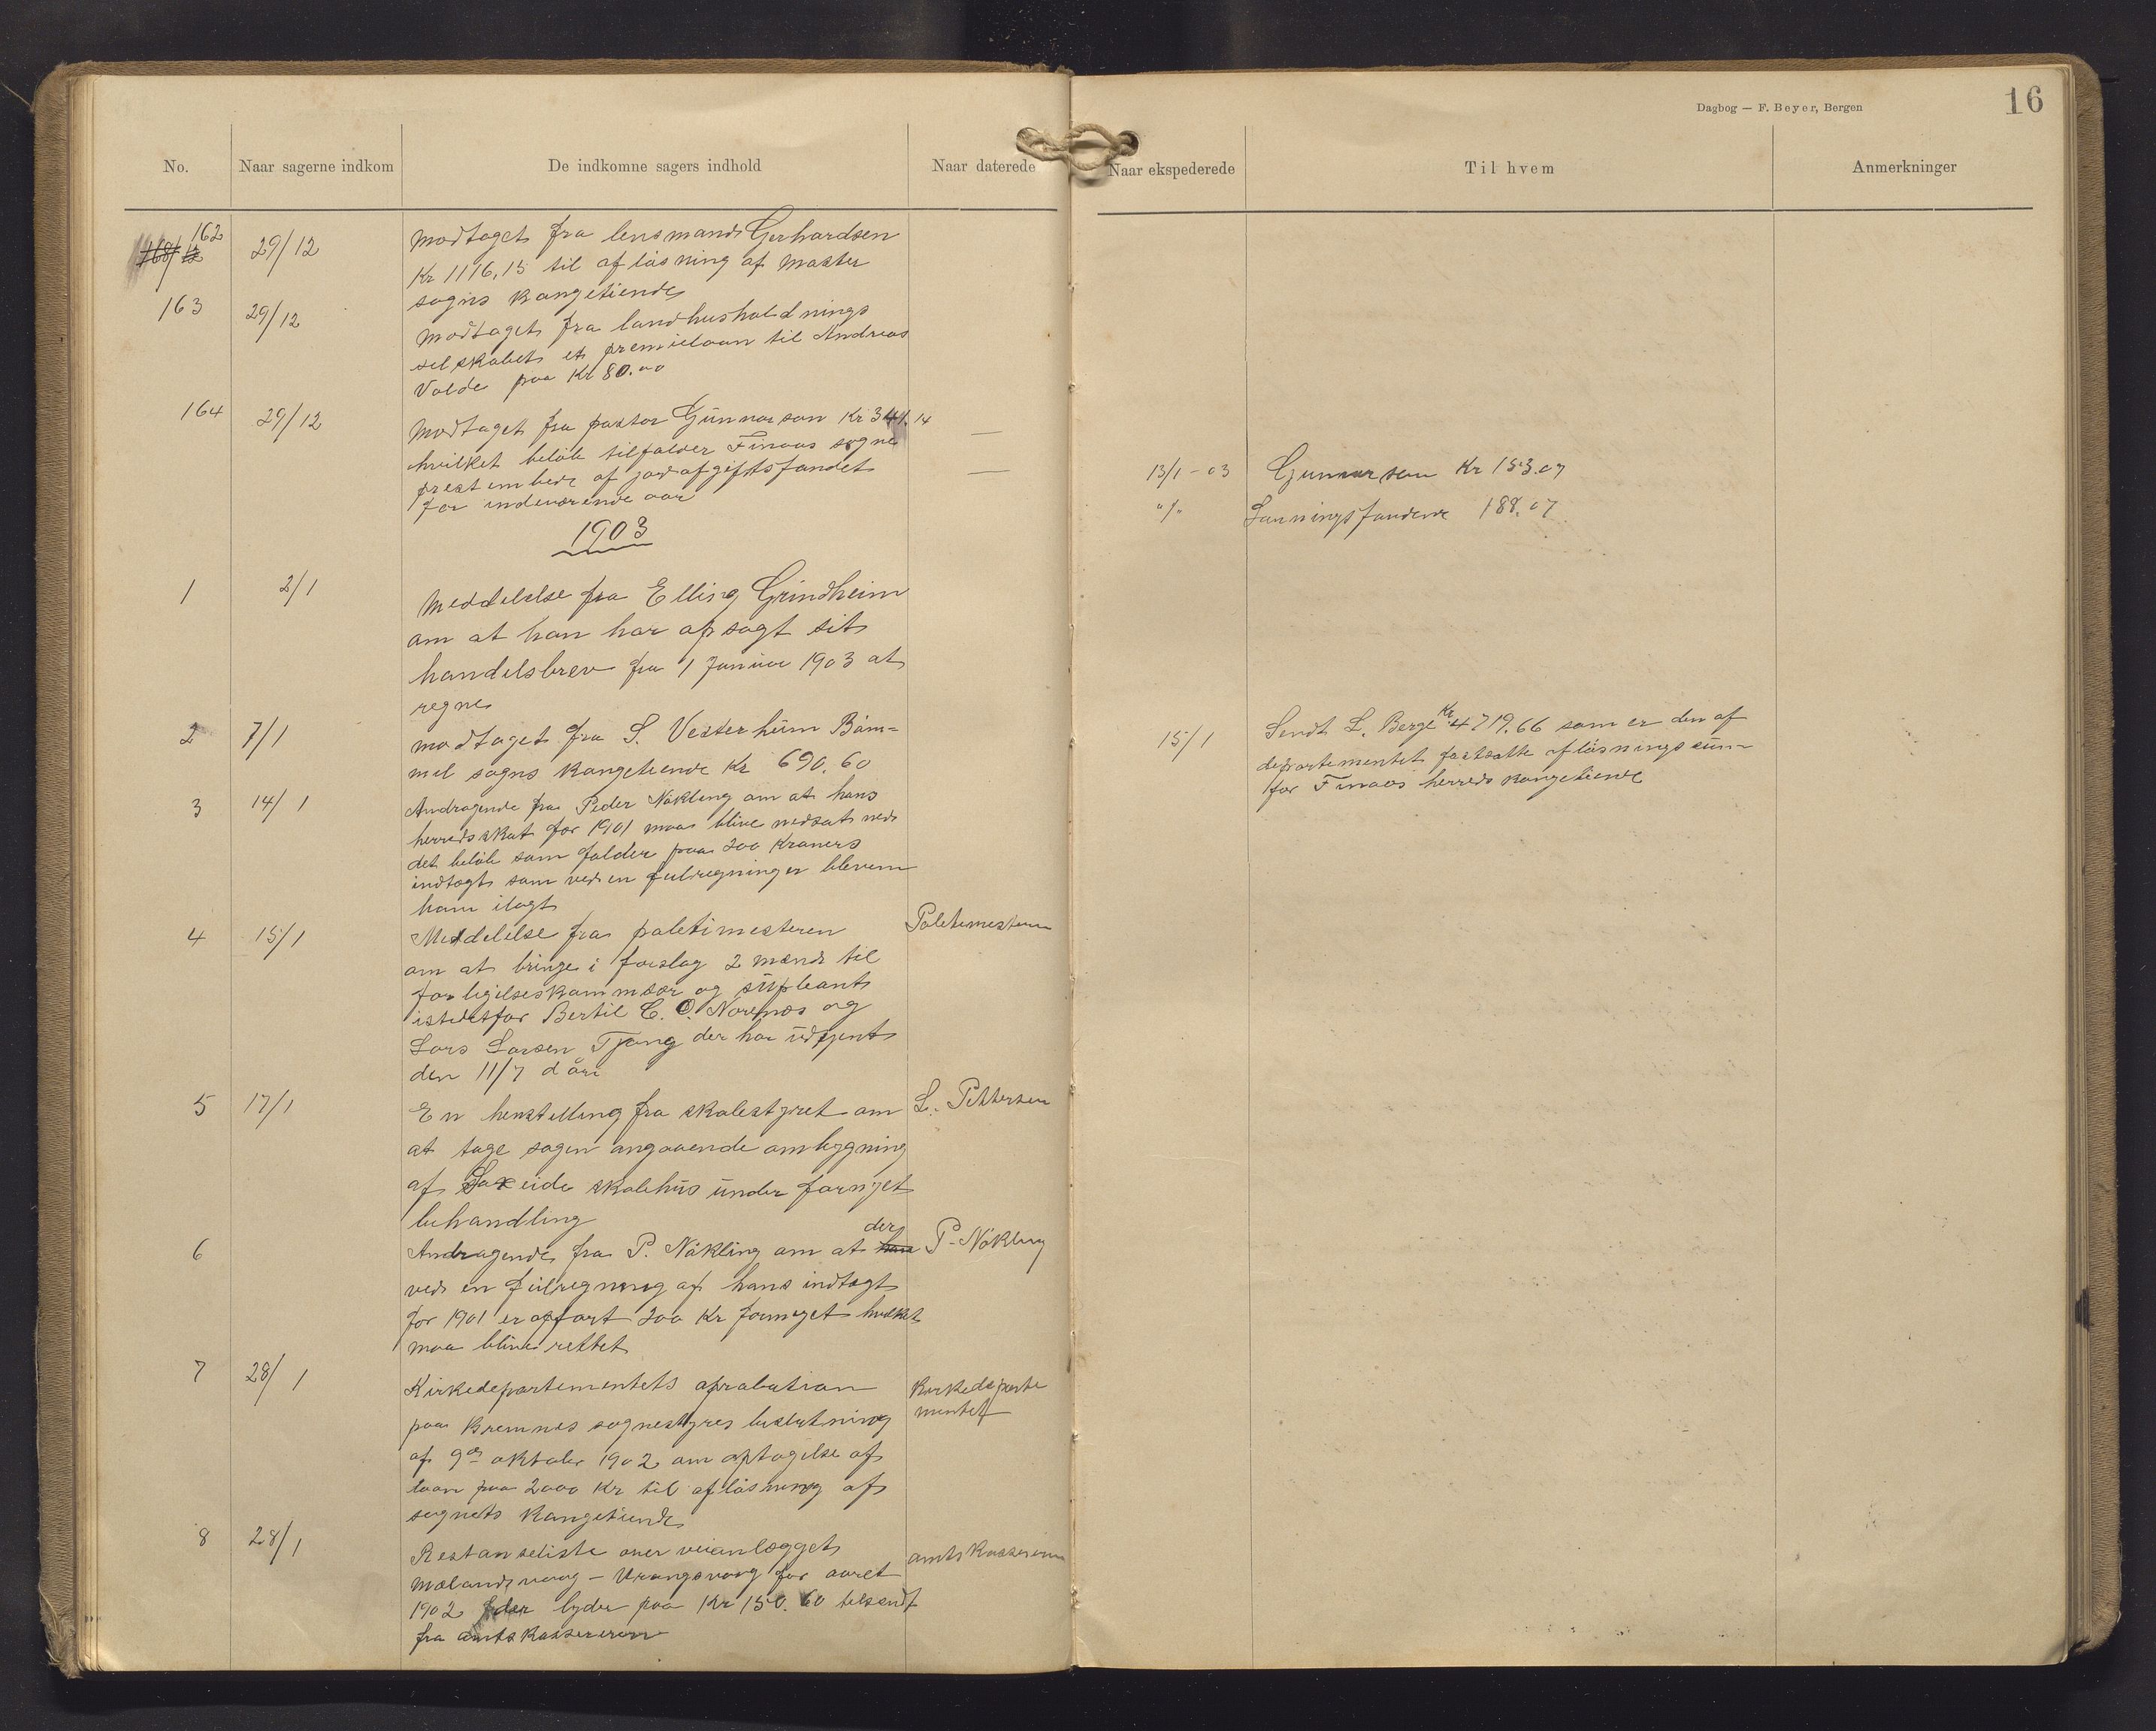 Dagbog — F. Beyer, Bergen
16
No.
Naar sagerne indkom
De indkomne sagers indhold
Naar daterede
Naar ekspederede
Til hvem
Anmerkninger
162
29/12
Modtaget fra lensmand Gerhardsen
Kr 1116,15 til aflösning af Moster
sogns Kongetiende
163
29/12
Modtaget fra landhusholdnings
selskabet et premielaan til Andreas
Volde paa Kr 80.00
164
29/12
Modtaget fra pastor Gunnarson Kr 341.14
hvilket belöb tilfalder Finaas sogne
prestembede af jordafgiftsfondet
for indeværende aar
13/1-03
Gunnarson Kr 153.07
"/"
Lønningsfondene 188.07
1903
1
2/1
Meddelelse fra Elling Grindheim
om at han har opsagt sit
handelsbrev fra 1 Januar 1903 at
regne
2
7/1
modtaget fra S. Vesterheim Böm=
mel sogns Kongetiende Kr 690.60
15/1
Sendt L. Berge Kr 4719.66 som er den af
departementet fastsatte aflösningssum
for Finaas herreds Kongetiende
3
14/1
Andragende fra Peder Nökling om at hans
herredsskat for 1901 maa blive nedsat med
det belöb som falder paa 200 Kroners
indtægt som ved en feilregning er bleven
ham ilagt
4
15/1
Meddelelse fra politimesteren
om at bringe i forslag 2 mænd til
forligelseskommisær og supleant
istedetfor Bertil C. O. Norenæs og
Lars Larsen Tjong der har udtjent
den 11/7 d år
Politimesteren
5
17/1
En henstilling fra skolestyret om
at tage sagen angaaende ombygning
af Sakseide skolehus under fornyet
behandling
L. Pettersen
6
Andragende fra P. Nökling om at der
ved en feilregning af hans indtægt
for 1901 er opført 200 Kr formeget hvilket
maa blive rettet
P. Nökling
7
28/1
Kirkedepartementets aprobation
paa Bremnes sognestyres beslutning
af 9de oktober 1902 om optagelse af
laan paa 2000 Kr til aflösning af
sognets Kongetiende
Kirkedeparte
mentet
8
28/1
Restanseliste over veianlægget
Mælandsvaag - Vrangsvaag for aaret
1902 der lyder paa Kr 150.60 tilsendt
fra amtskassereren
amtskassereren